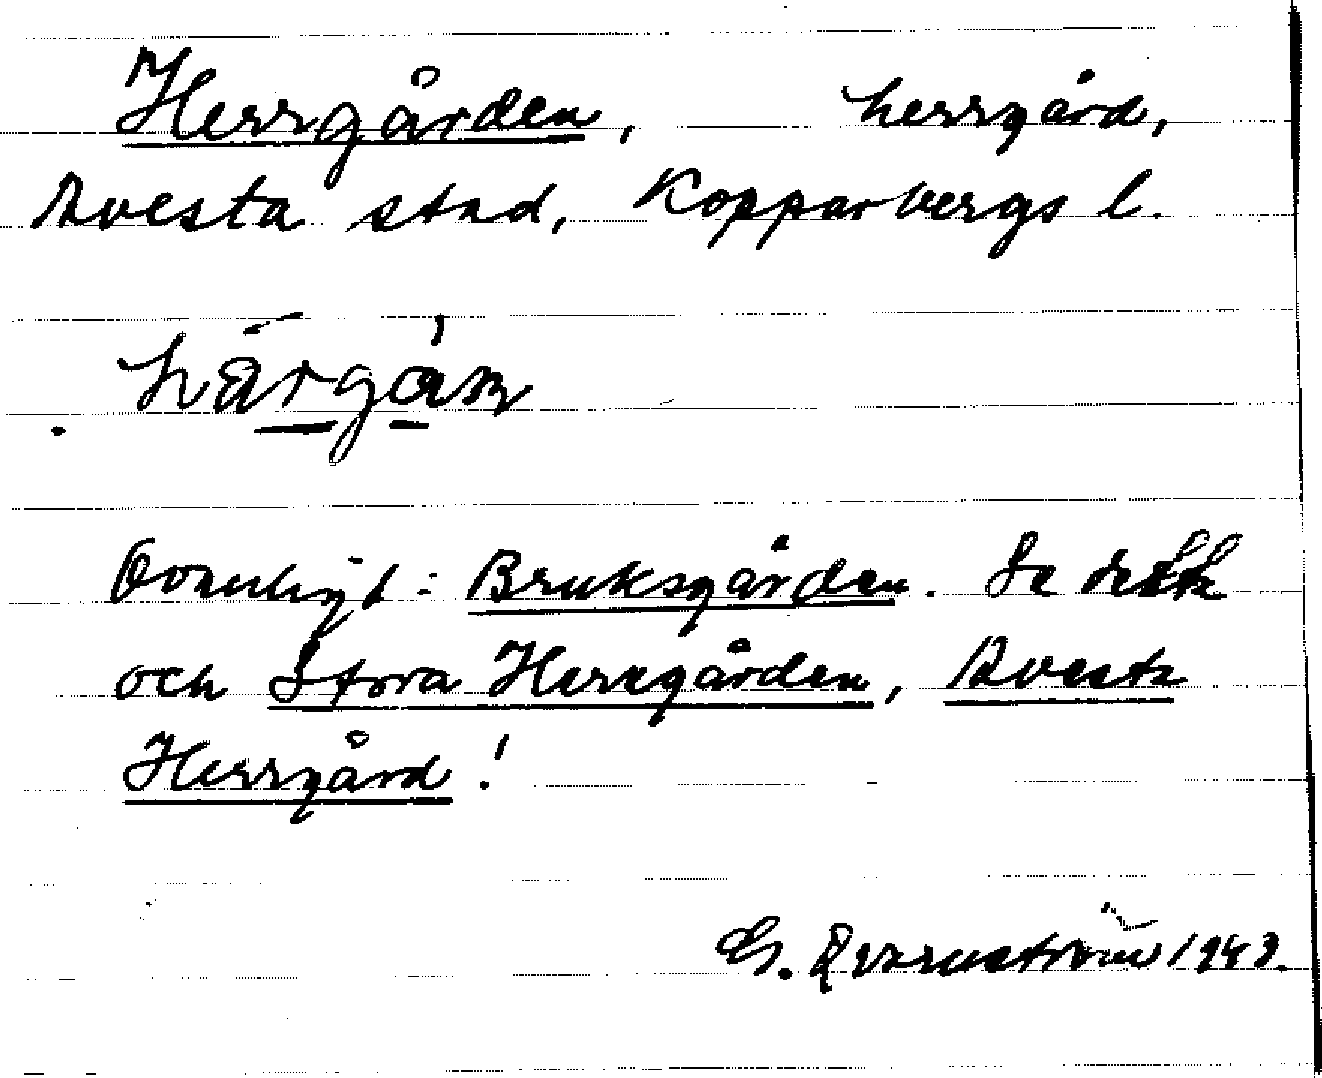 Herrgården, herrgård,
Avesta stad, Kopparbergs l.
härgán
Ovanligt: Bruksgården. Se detta
och Stora Herrgården, Avesta
Herrgård!
G. Qvarnström 1943.